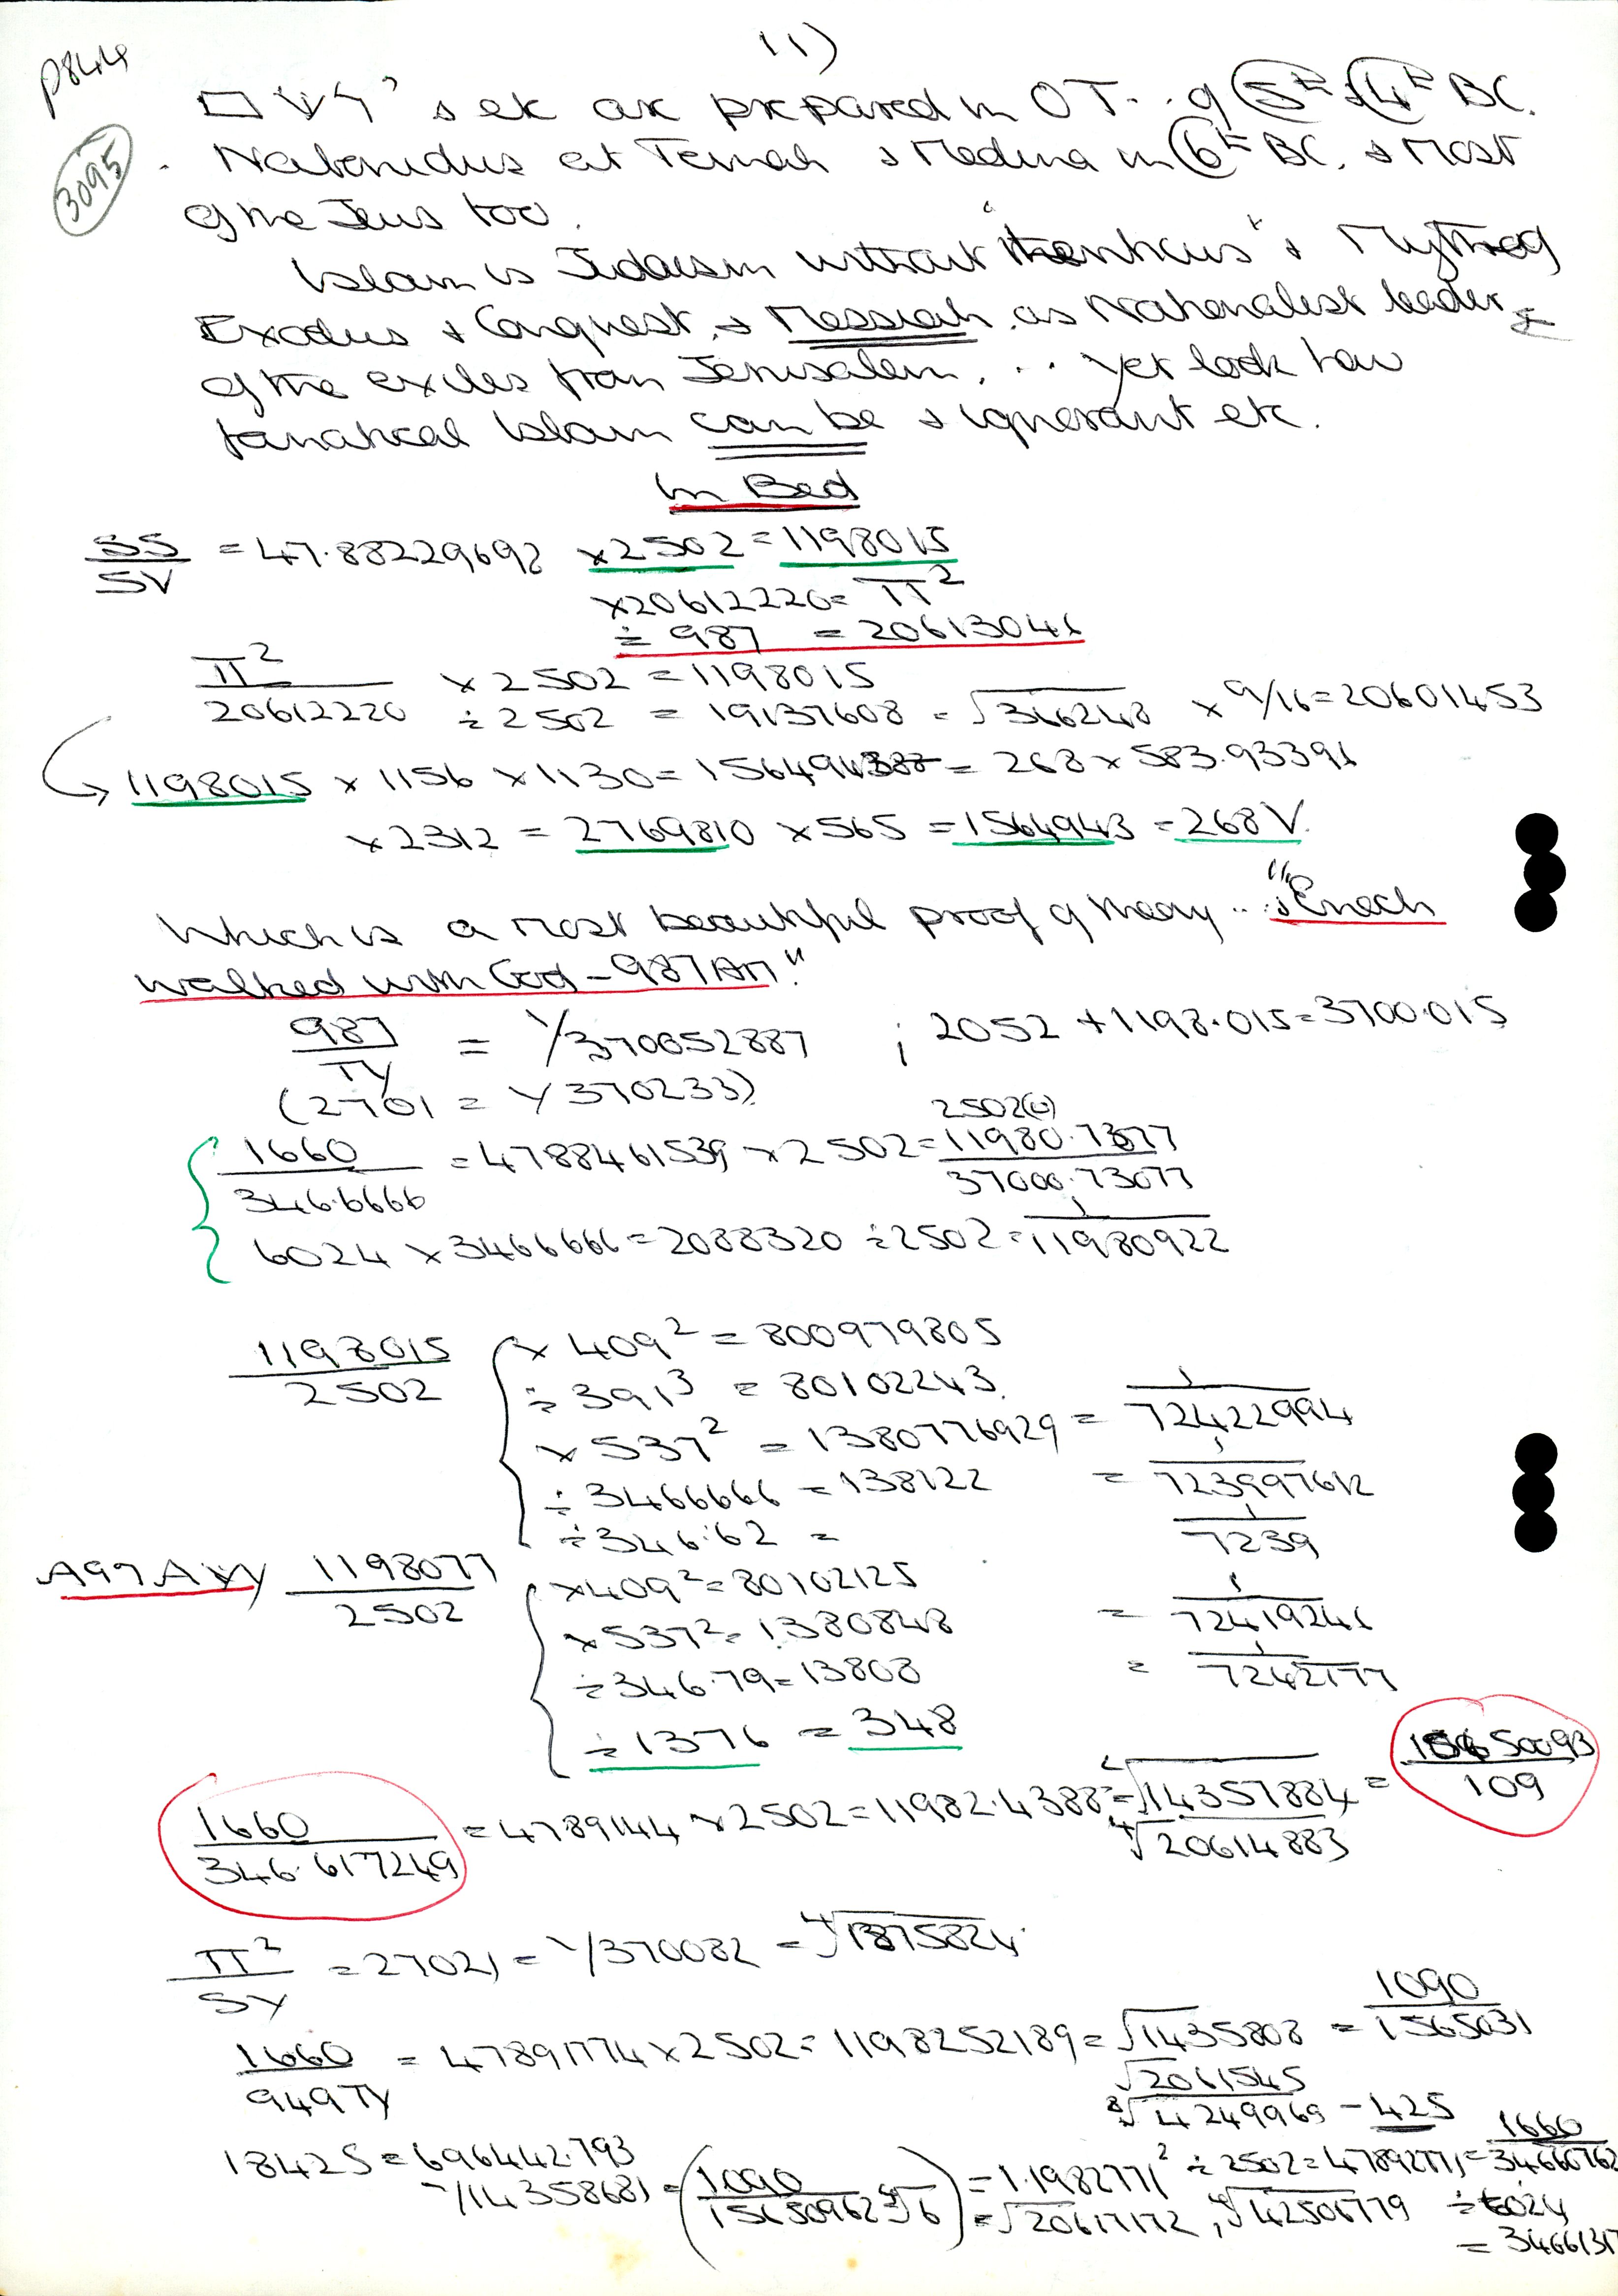 11)
p844
3095
s etc are prepared in O T. . . of 5th & 4th BC.
. Nabonidus at Temah & Medina in 6th BC. & Most
of the Jews too.
Islam is Judaism without & Myth of
Exodus & Conquest, & Messiah as Nationalist leader
of the exiles from Jerusalem, . . . yet look how
fanatical Islam can be & ignorant etc.
In Bed
SS/SV = 47.88229692 ×2502 = 1198015
×20612220 = π²
÷ 987 = 20613046
π²/20612220 × 2502 = 1198015
÷ 2502 = 19137608 = √366248 × 9/16 = 20601453
1198015 × 1156 × 1130 = = 268 × 583.93391
×2312 = 2769810 ×565 = 1564943 = 268 V.
Which is a most beautiful proof of theory ... & "Enoch
walked with God – 987 AM"
987/TY = 1/370052887 ; 2052 + 1198.015 = 3700.015
(2701 = 1/370233)
2502(0)
1660/346.6666 = 4788461539 × 2502 = 11980.73077
37000.73077
6024 × 3466666 = 2088320 ÷ 2502 = 1/11980922
1198015/2502 × 409² = 800979805
÷ 391³ = 80102243.
× 537² = 1380776929 = 1/72422994
÷ 3466666 = 138122 = 1/723997612
÷ 346.62 = 1/7239
1198077/2502 ×409² = 80102125
×537² = 1380848 = 1/72419246
÷346.79 = 13808 = 1/7242177
÷1376 = 348
1660/346.617249 = 4789144 × 2502 = 11982.4388 = √14357884 = 15650093/109
⁴√20614883
π²/SY = 27021 = 1/370082 = ⁴√1875824
1660/949TY = 47891774 × 2502 = 1198252189 = √1435808 = 1090/1565031
√2061545
⁸√4249969 – 425
18425 = 696442.793
1/14358681 = (1090/15650962 ⁶√6) = 1.1982771² ÷ 2502 = 47892771 = 1660/34660762
= √20617172, ⁴√42506779 ÷ 6024
= 3466131